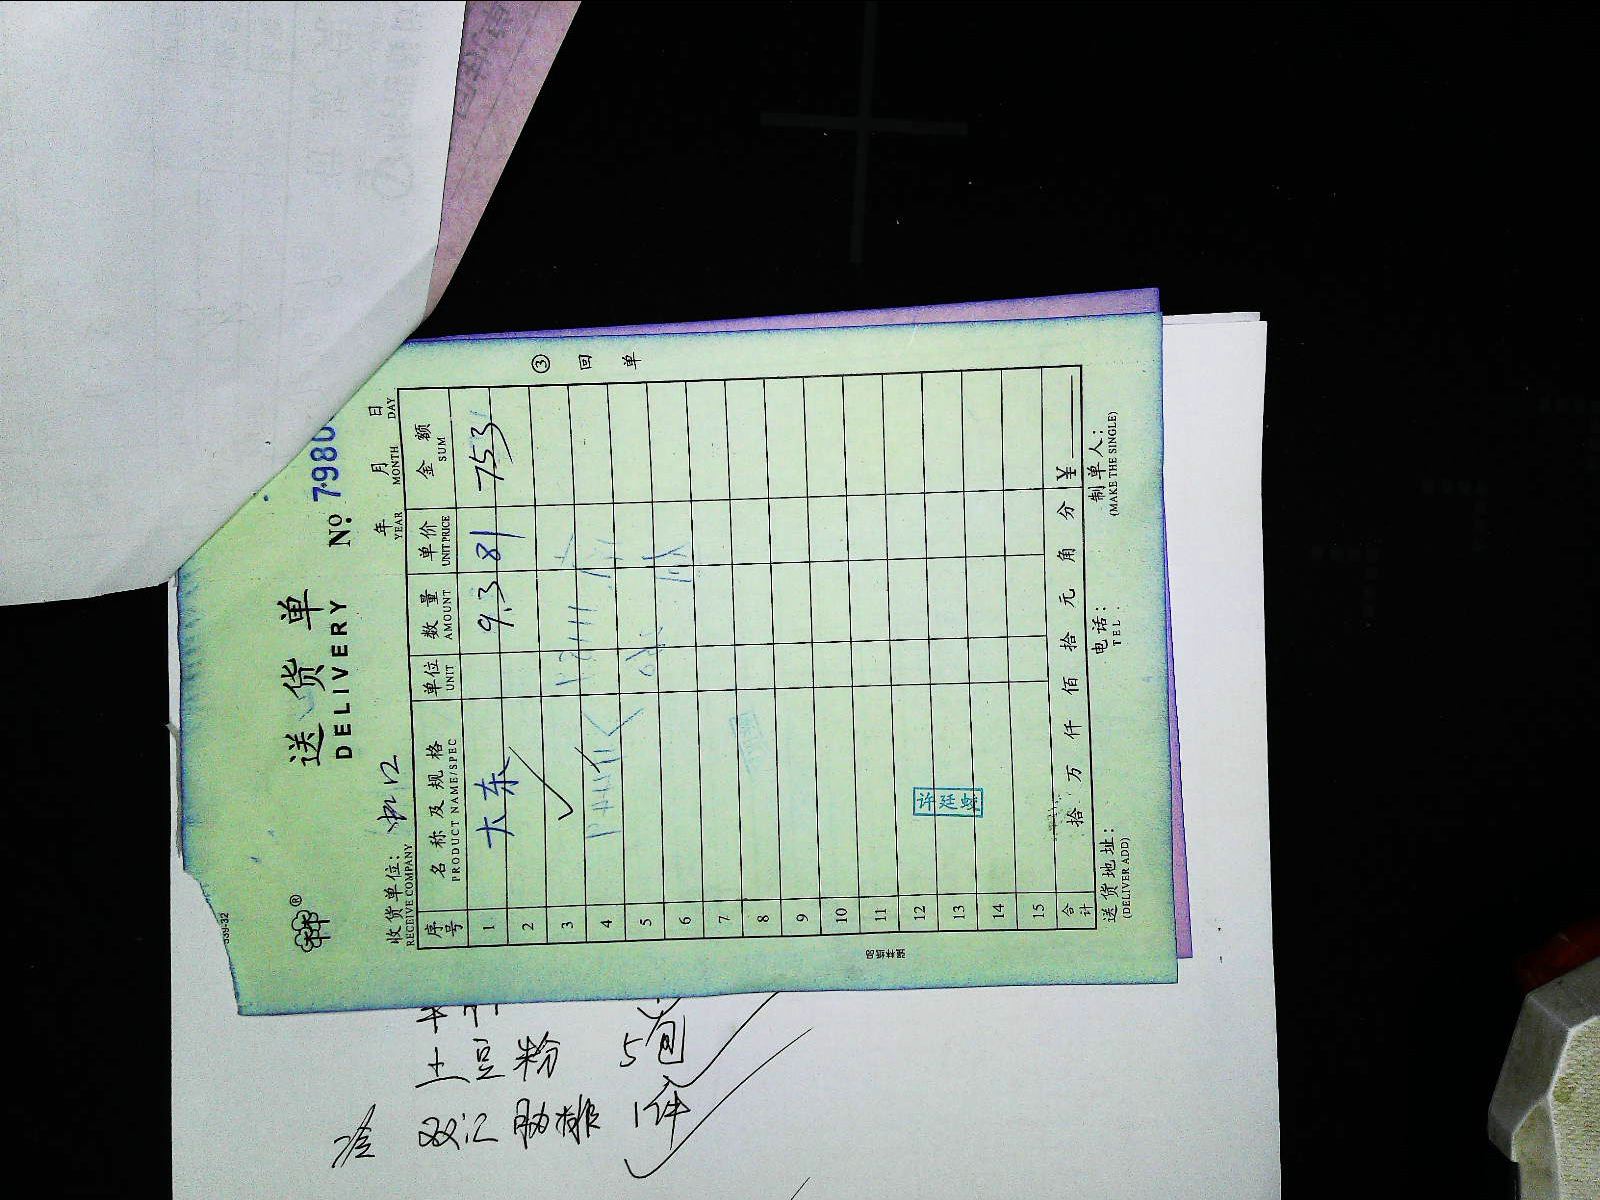 送货单
DELIVERY
№ 7980
年 月 日
YEAR MONTH DAY
收货单位:
RECEIVE COMPANY
序号 名称及规格 单位 数量 单价 金额
PRODUCT NAME/SPEC UNIT AMOUNT UNIT PRICE SUM
1 大东 9.3 81 753
2
3
4
5
6
7
8
9
10
11
12
13
14
15
许廷蛟
合计 拾 万 仟 佰 拾 元 角 分 ¥
送货地址: 电话: 制单人:
(DELIVER ADD) TEL. (MAKE THE SINGLE)
③ 回单
强林纸品
土豆粉 5包
双汇肋排 1件